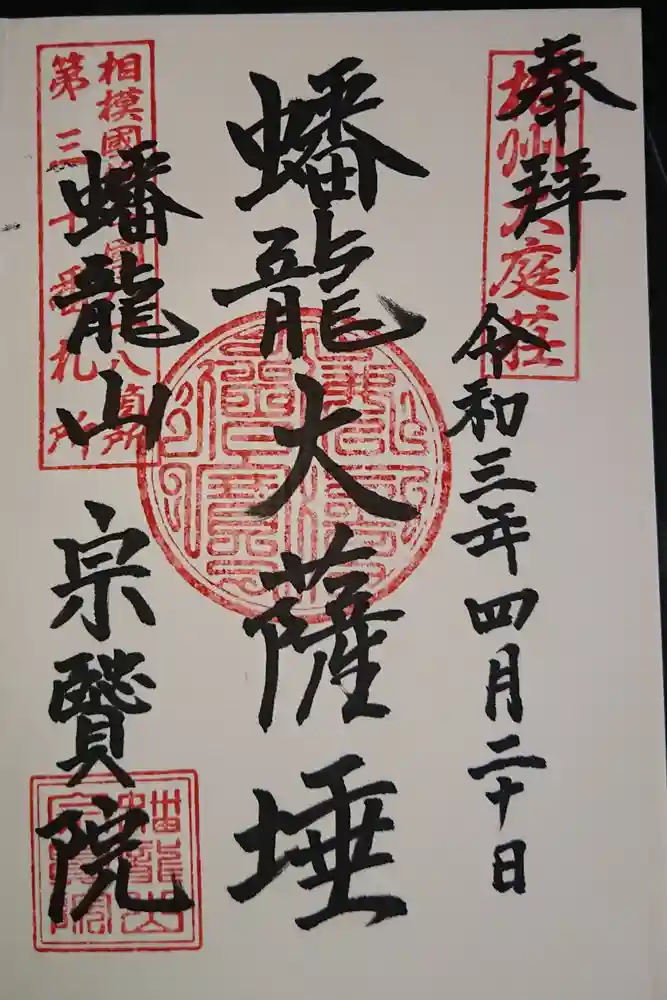 奉拝
相州大庭荘
令和三年四月二十日
蟠龍大薩埵
蟠龍山 宗賢院
相模國 國八十八箇所
第三 十番札所
蟠龍山
宗賢院